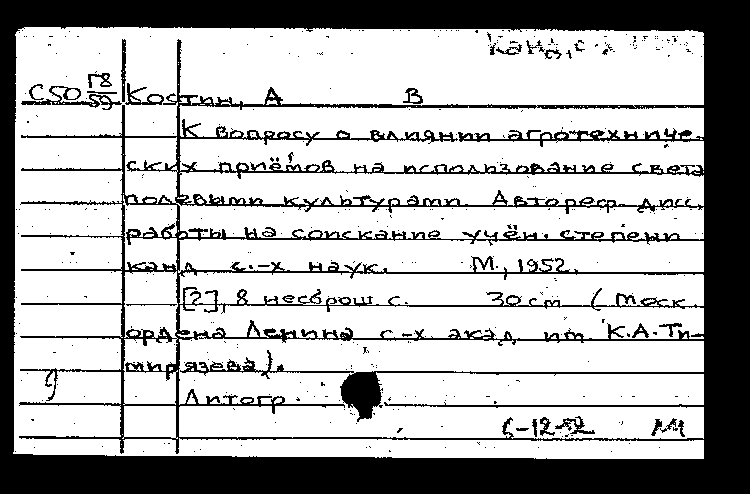 Канд. с-х
С50 Г8/59 Костин, А В
К вопросу о влиянии агротехниче-
ских приёмов на использование света
полевыми культурами. Автореф. дисс.
работы на соискание учён. степени
канд с.-х. наук. М., 1952.
[2], 8 несброш. с. 30 cm (Моск.
ордена Ленина с-х. акад. им. К.А. Ти-
мирязева).
9
Литогр.
6-12-52 МИ